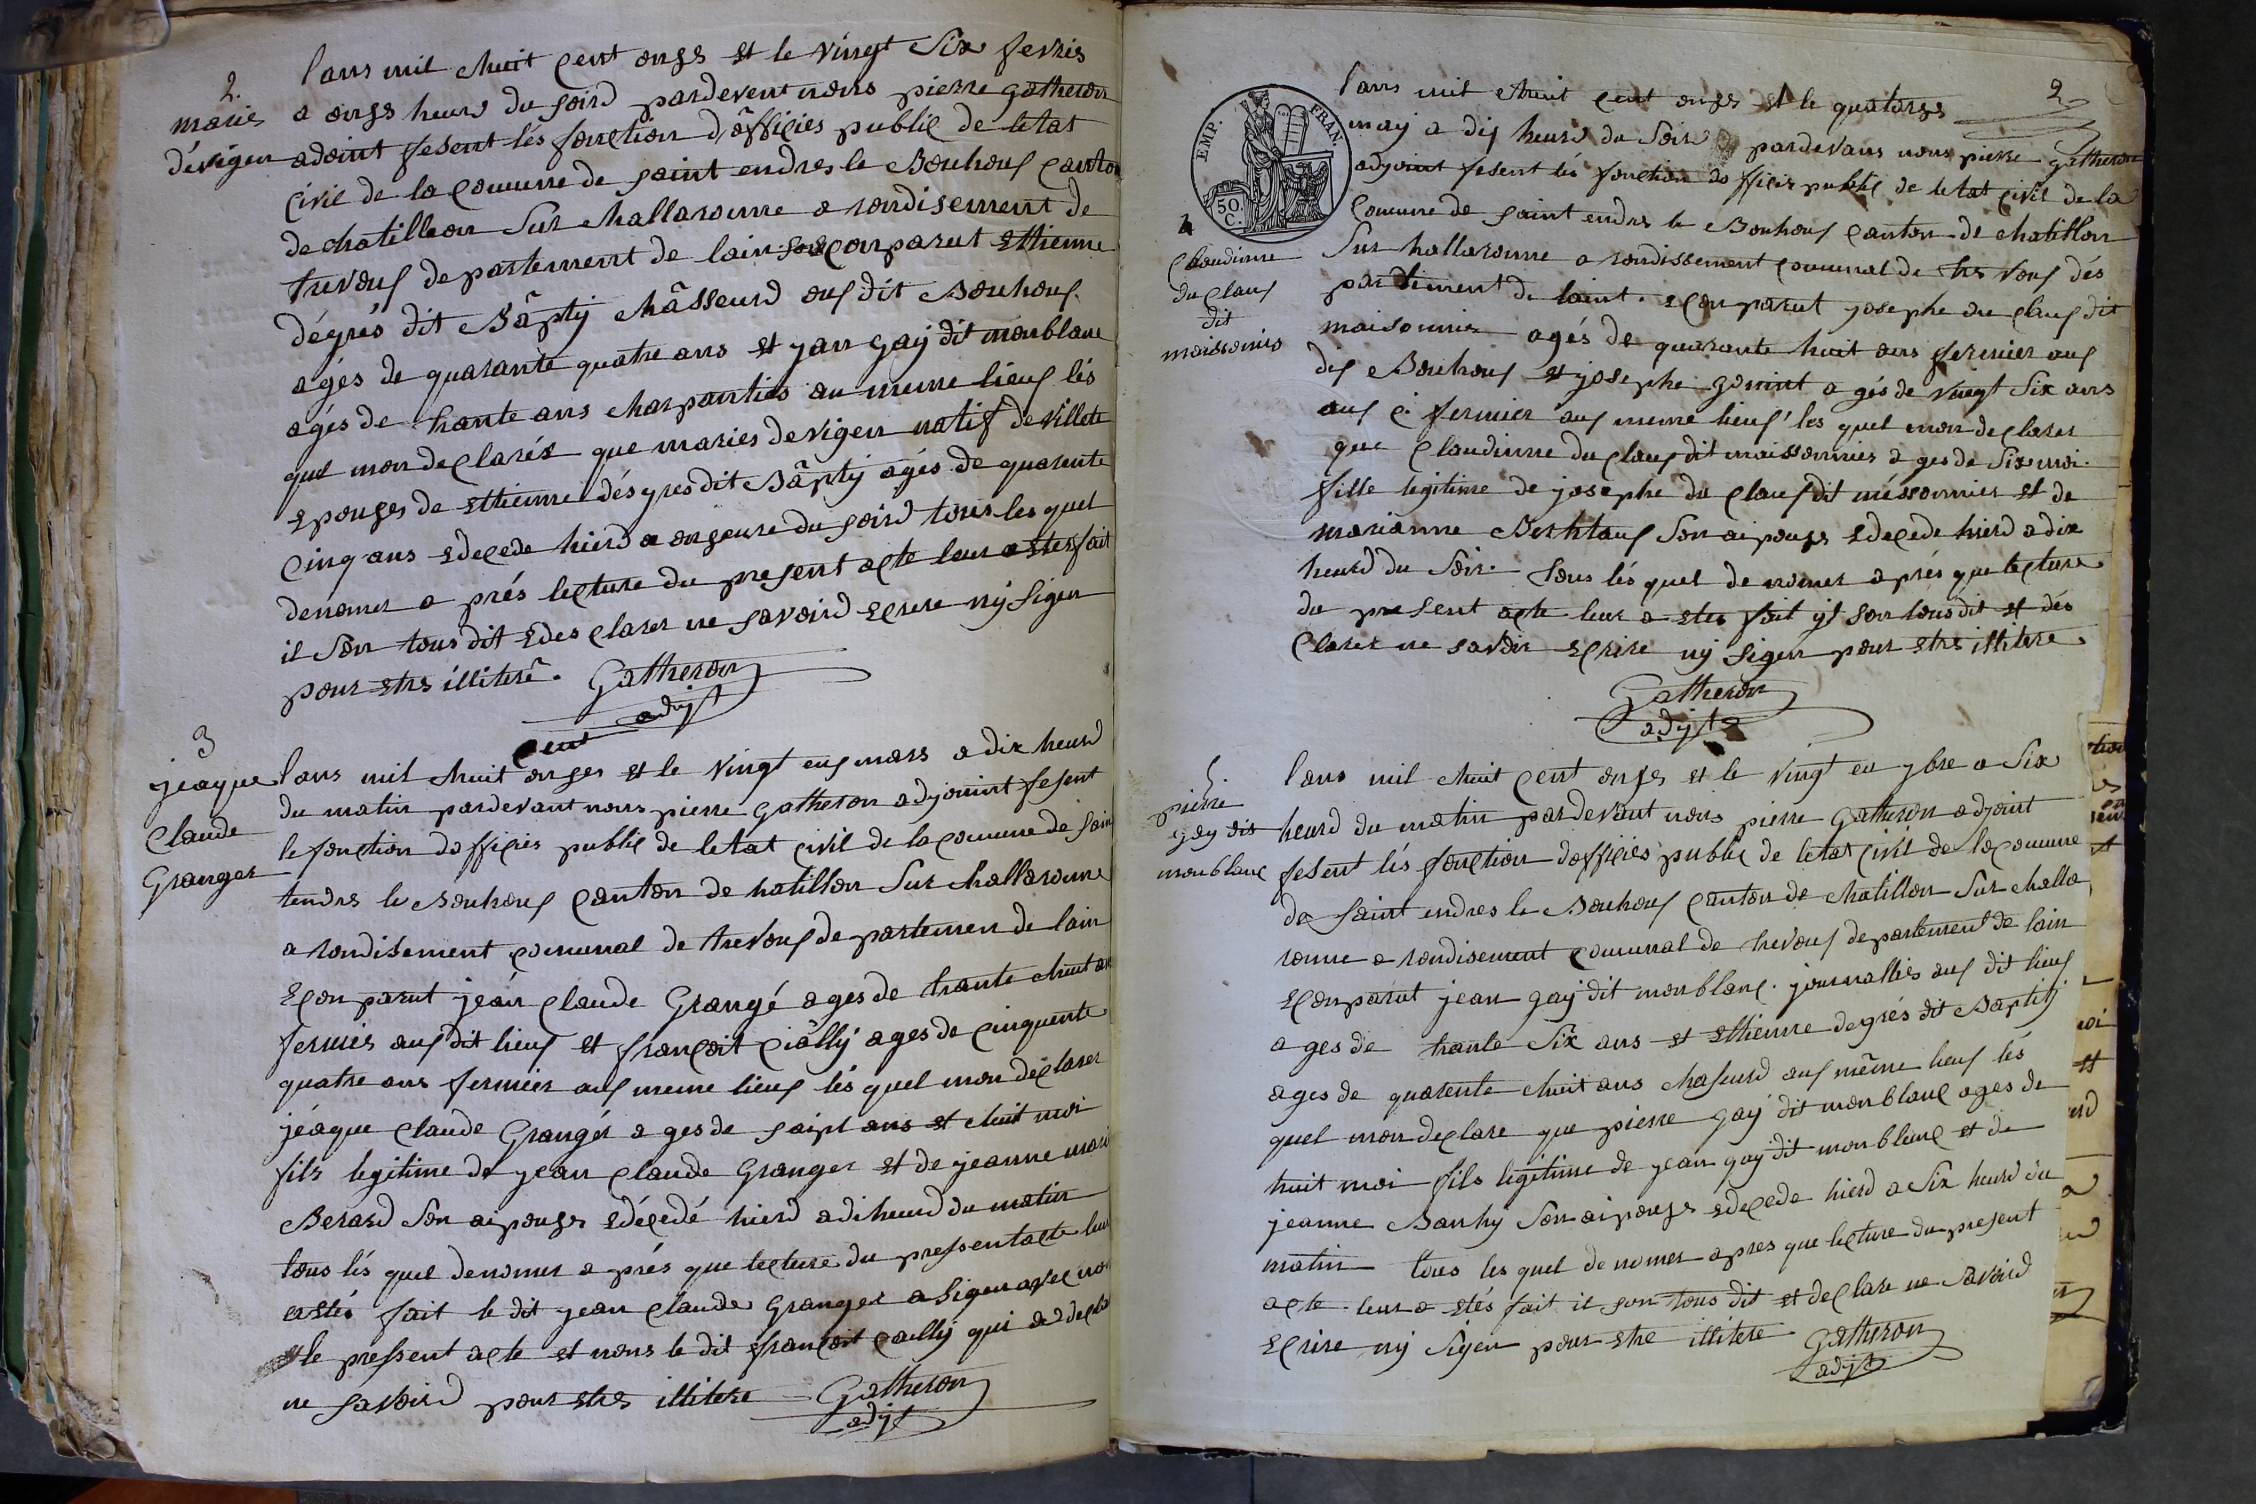 2.
marie
dévigen
lans mil chuit cent onzs et le vingt Six fevrie
a onzs heurd du soird pardevent nous pierre gatheron
adoint fesent lés fonction d'officies public de letat
civil de la comunne de saint endres le Bouhouf canton
de chatillion Sur challaronne a rondisement de
trevouf departement de lain econparut Ettienne
dégrés dit Bâpty châsseurd ouf dit Bouhouf.
agés de quarante quatre ans et yan gay dit monblanc
agés de trante ans charpantiés au meme lieuf lés
quel mon declarés que maries devigen natif de villete
epouzes de Ettienne dégres dit Bâpty agés de quarente
cinq ans edecede hierd a onzeure du soird tous les quel
denomer a prés lecture du present acte leur a etes fait
il son tous dit edes clarer ne savoird ecrere ny signer
pour etrs illiterê. Gatheron
adjt
3
jeaque
Claude
Granger
cent
lans mil chuit onzes et le vingt euf mars a dix heurd
du matin pardevant nous pierre gatheron adjouint fesent
le fonction dofficies public de letat civil de la comune de sain
tendrs le Bouhouf canton de hatillon Sur challaronne
a rondisement comunal de trevouf departemen de lain
econparut jeán claude Grangé ages de trante chuit an
fermies auf dit lieuf et françoit ciâlly ages de cinquente
quatre ans fermier auf meme lieuf lés quel mon déclarer
jéaque claude Grangér a ges de saipt ans et chuit moi
fils legitime de yean claude Granger et de jeanne mari
Berard son aipouzs edécedé hierd a di heurd du matin
tous lés quel denomer a prés que lecture du pressentacte leur
a etés fait le dit yean claude Granger a signer avec nou
le pressent acte et nons le dit françoit cailly qui a declar
ne savoird pour etrs illitere Gatheron
adjt
2
EMP. FRAN.
50.
C.
4
Claudinne
du clauf
dit
maissonnis
lans mil chuit cent onzs et le quatorzs
may a dij heurd du Soir pardevans nous pierre gatheron
adjoint fesent lés fonction do fficir public de letat civil de la
comune de saint endrs le Bouhouf canton de chatillon
Sur hallaronne a rondissement comunal de tre vouf dés
partiment de laint. econparut josephe du clauf dit
maisonnier agés de quarante huit ans fermier auf
dij Bouhouf et josephe gonint a gés de vingt Six ans
auf ci fermier auf meme lieuf les quel mon declarer
que claudinne du clauf dit maissonnier a ges de Six moi.
fille legitime de josephe du clauf dit méssonnier et de
marianne Berhtauf Son aipouzs edecede hierd a dix
heurd du Soir. tous lés quel de nomer a prés que lecture
du present acte leur a etes fait yl son tous dit et dés
clarer ne savoir ecrire ny signer pour etrs illitere
Gatheron
adjt
5.
pierre
gay dit
monblanc
lans mil chuit cent onzs et le vingt eu ybre a Six
heurd du matin pardevant nous pierre Gatheron adjoint
fesent lés fonction dofficiés public de letat civil de la comune
de saint endres le Bouhouf canton de chatillon Sur challa
ronne a rondisement comunal de trevouf departement de lain
econparut jean gay dit monblanc. journalliés auf dit lieuf
a ges de trante Six ans et ettienne degrés dit Baptiy
ages de quarente chuit ans chaseurd auf mème lieuf lés
quel mon declare que pierre gay dit monblanc ages de
huit moi fils legitime de yean gay dit monblanc et de
jeanne Banhy Son aipouzs edecede hierd a Six heurd du
matin tous les quel de nomer apres que lecture du present
acte leur a etés fait il son tous dit et declare ne savoird
ecrire ny Signer pour etre illitere Gatheron
adjt